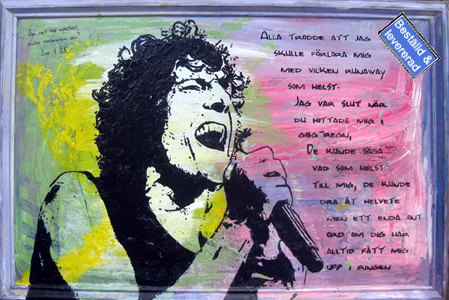 Beställd &
levererad
Alla trodde att jag
skulle förlora mig
med vilken runaway
som helst.
Jag var slut när
du hittade mig i
gbg regn,
De kunde säga
vad som helst
till mig, de kunde
dra åt helvete
men ett enda ont
ord om dig har
alltid fått mig
upp i ringen